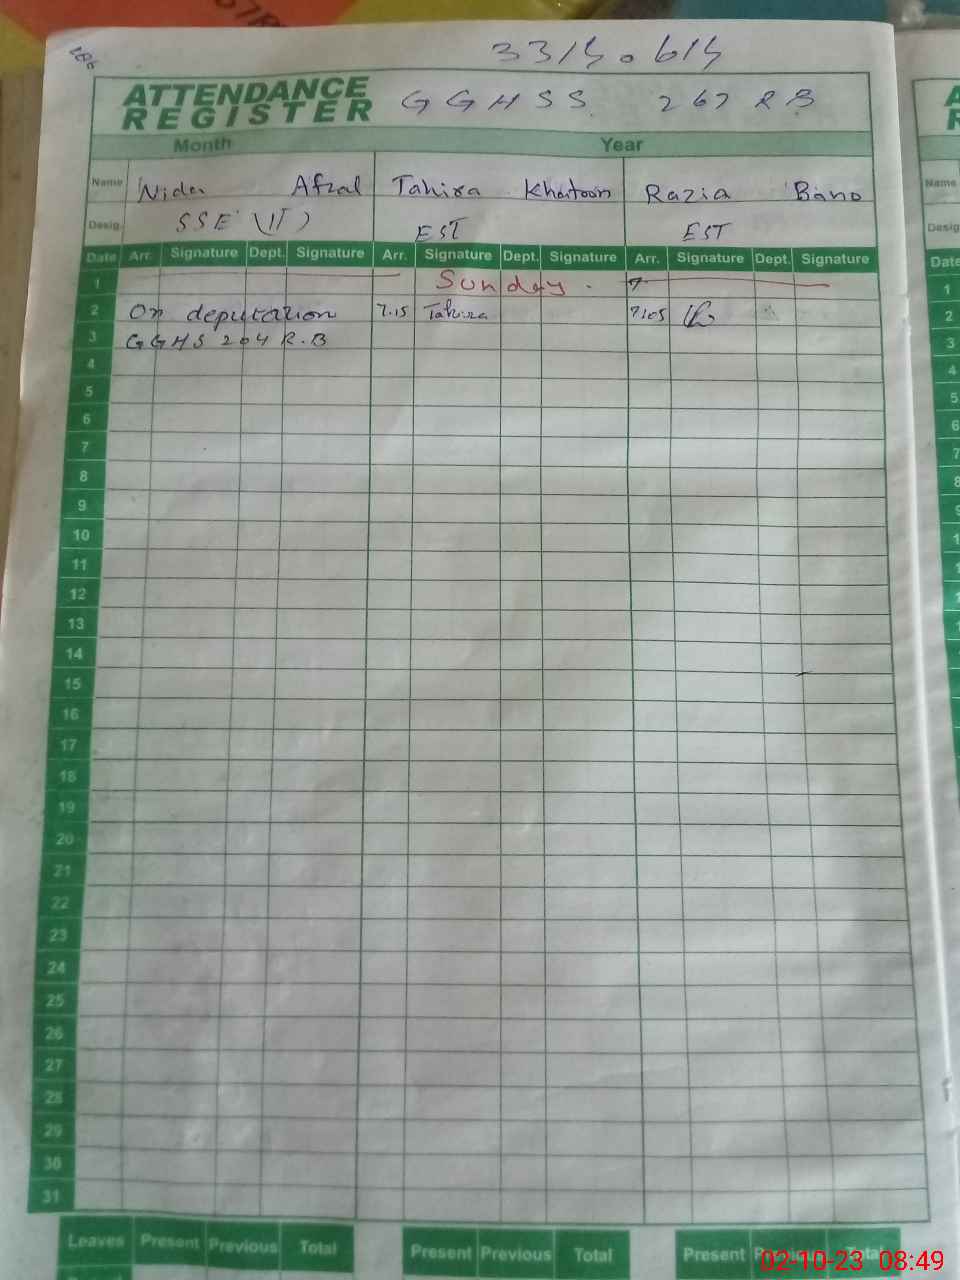 786
ATTENDANCE REGISTER
GGHSS 267 RB
Month Year
Name Nida Afzal Tahira Khatoon Razia Bano
Desig. SSE (IT) EST EST
Date Arr. Signature Dept. Signature Arr. Signature Dept. Signature Arr. Signature Dept. Signature
1 Sunday.
2 On deputation 7.15 Tahira 7:05
3 GGHS 204 R.B
4
5
6
7
8
9
10
11
12
13
14
15
16
17
18
19
20
21
22
23
24
25
26
27
28
29
30
31
Leaves Present Previous Total Present Previous Total Present Previous Total
02-10-23 08:49
Name
Desig
Date
1
2
3
4
5
6
7
8